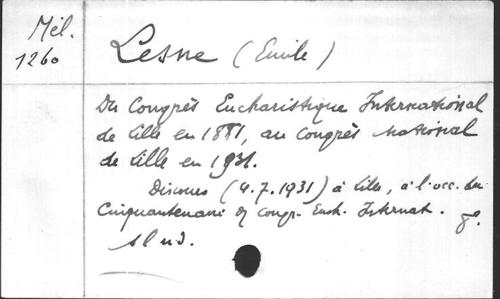 Mél.
1260
Lesne (Emile)
Du Congrès Eucharistique International
de Lille en 1881, au Congrès National
de Lille en 1931.
Discours (4.7.1931) à Lille, à l'occ. du
Cinquantenaire Congr. Euch. Internat.
8°.
s l n d.